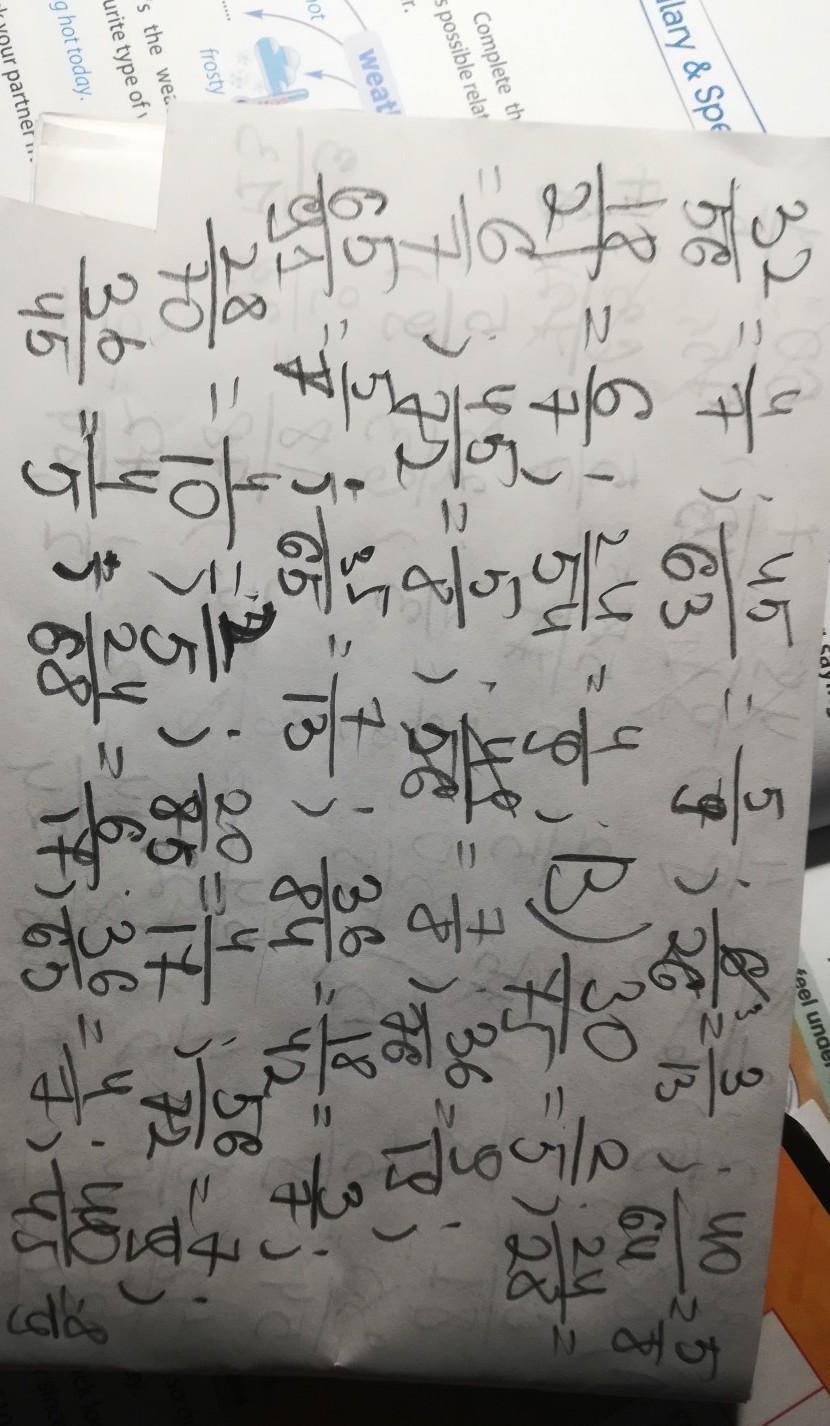 lary & Spe
Complete th
s possible relat
r.
weat
not
frosty
's the wea
urite type of
g hot today.
k your partner
feel under
32/56 = 4/7 ; 45/63 = 5/7 ; 6/26 = 3/13 ; 40/64 = 5/8
18/21 = 6/7 ; 24/54 = 4/9 ; B) 30/75 = 2/5 ; 24/28 =
= 6/7 ; 45/72 = 5/8 ; 49/56 = 7/8 ; 36/76 = 9/19 ;
65/91 = 5/7 ; 35/65 = 7/13 ; 36/84 = 18/42 = 3/7 ;
28/70 = 4/10 = 2/5 ; 20/85 = 4/17 ; 56/72 = 7/9 ;
36/45 = 4/5 ; 24/68 = 6/17 ; 36/63 = 4/7 ; 40/45 = 8/9